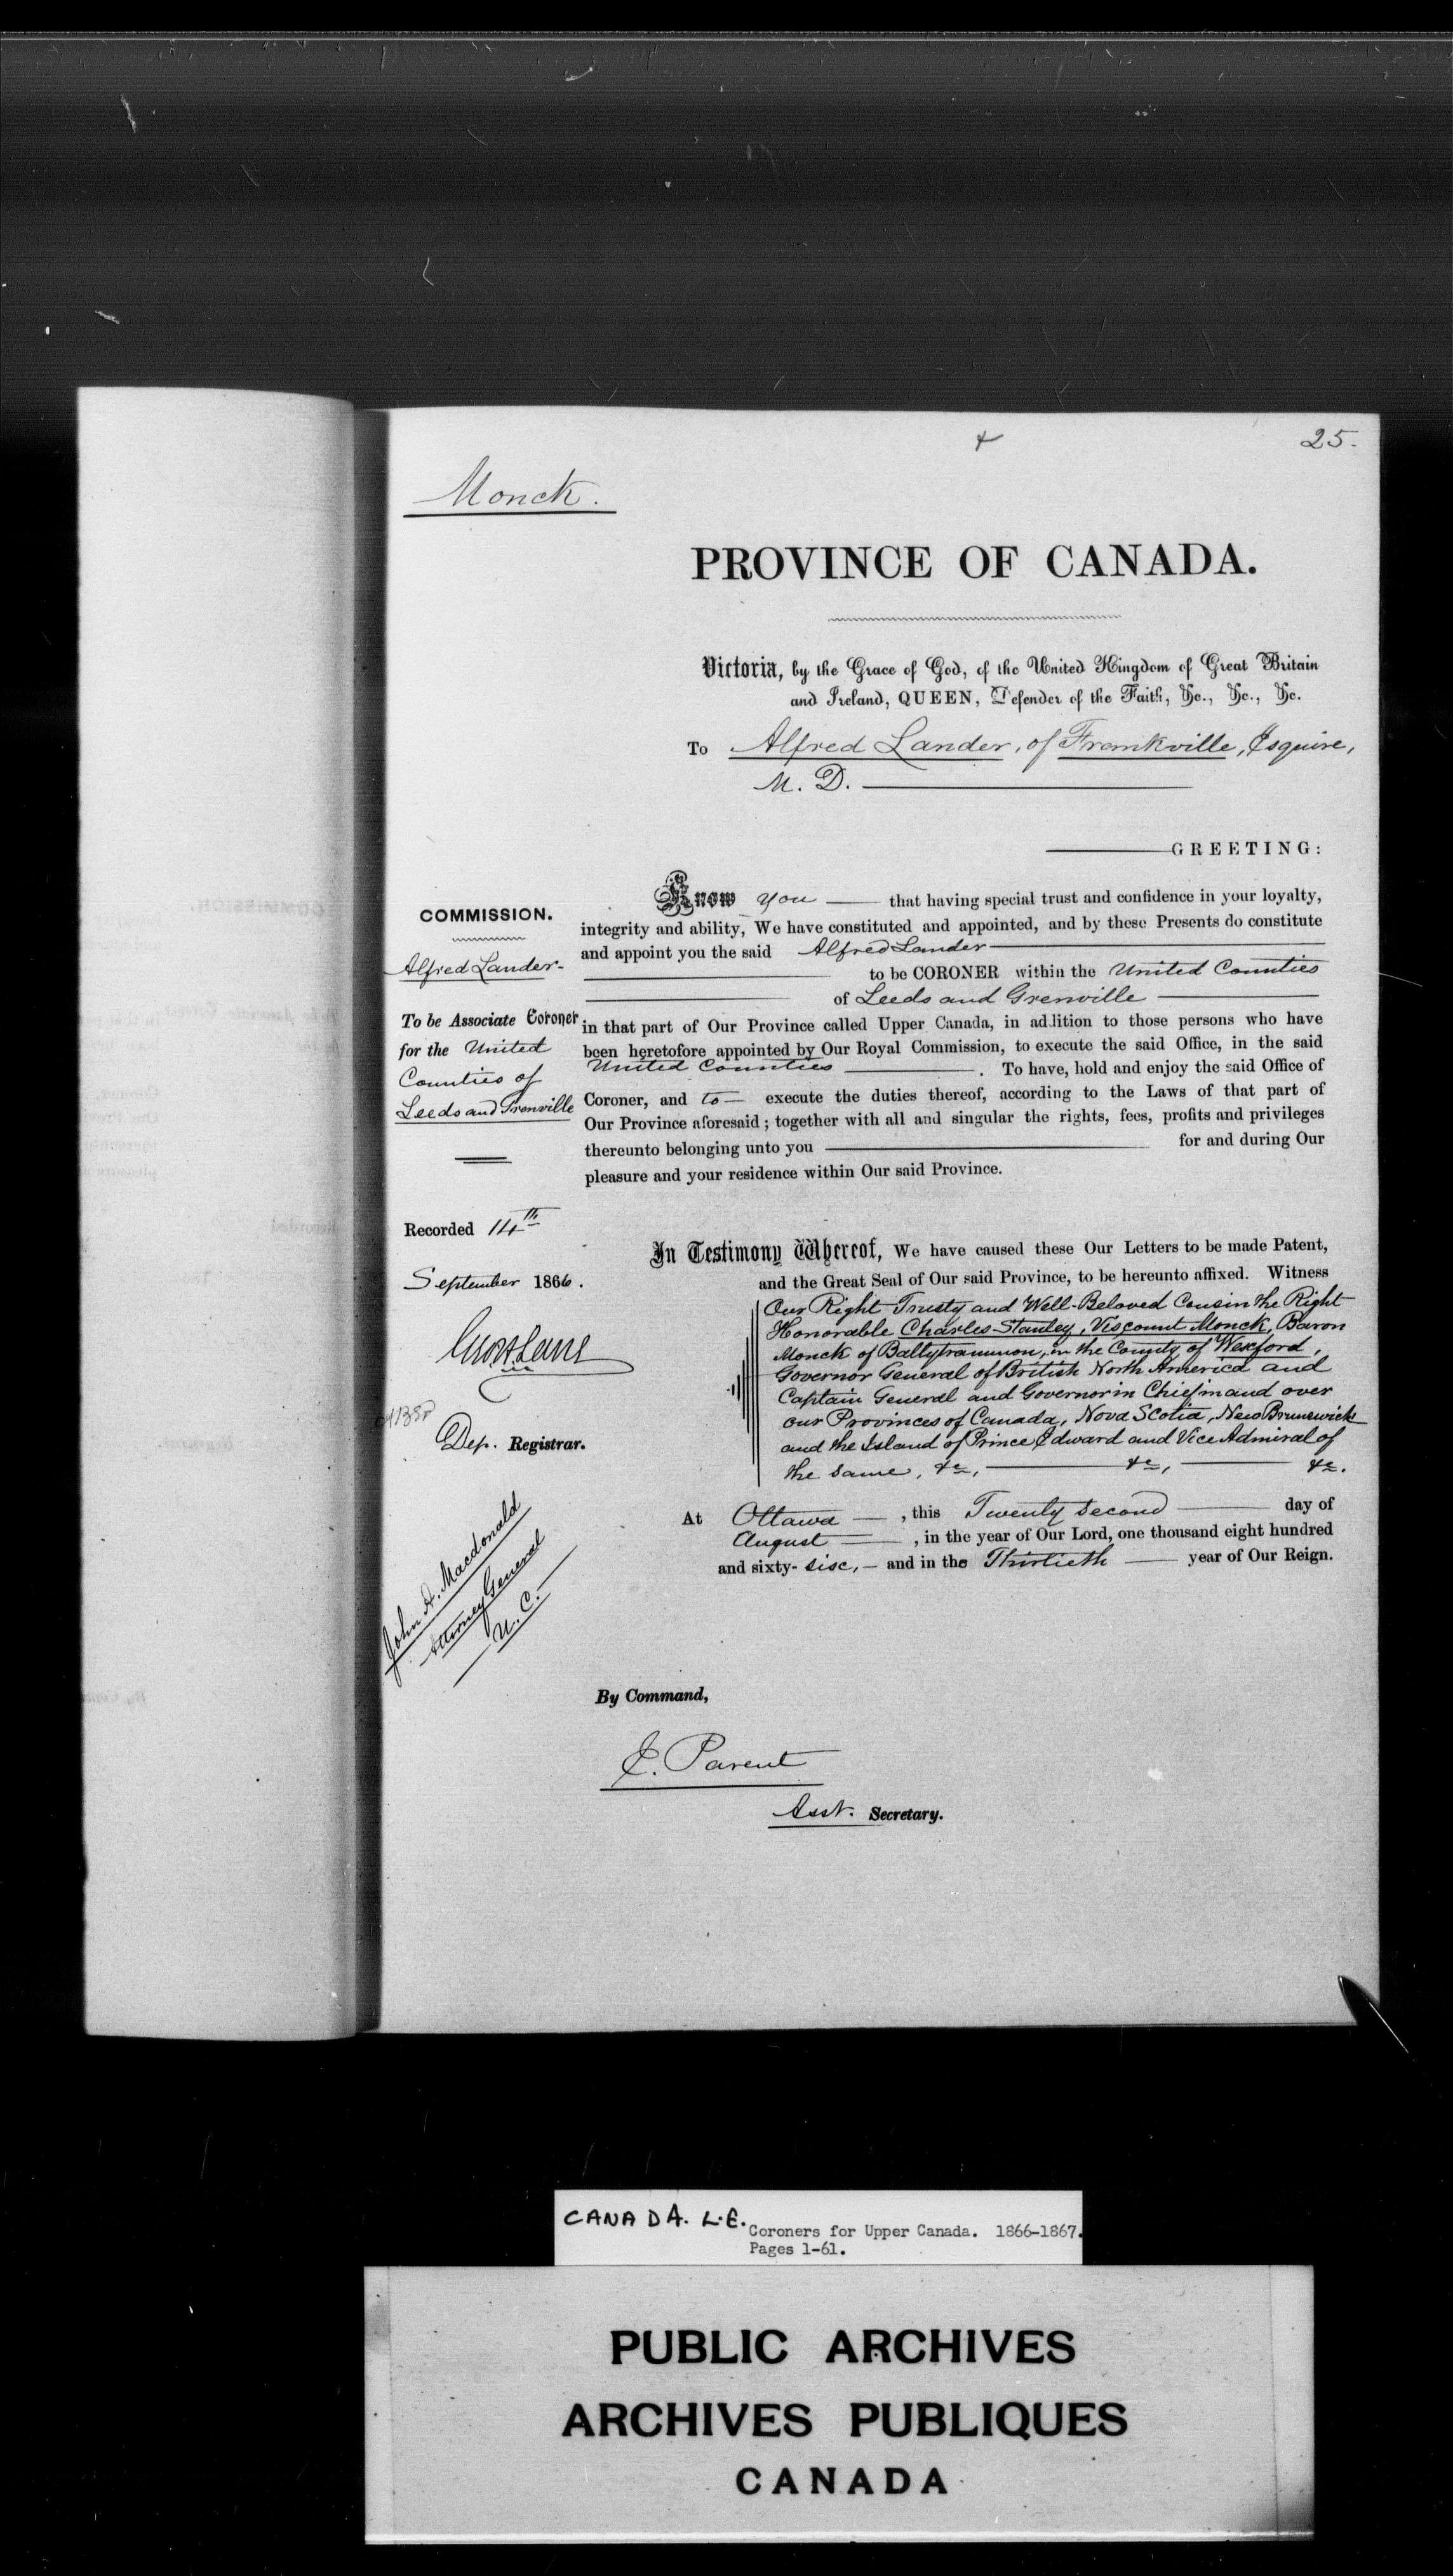 25.
Monck.
PROVINCE OF CANADA.
Victoria, by the Grace of God, of the United Kingdom of Great Britain
and Ireland, QUEEN, Defender of the Faith, &c., &c., &c.
To Alfred Lander, of Frankville, Esquire,
M. D.
GREETING:
COMMISSION.
Alfred Lander.
To be Associate Coroner
for the United
Counties of
Leeds and Grenville
Know you that having special trust and confidence in your loyalty,
integrity and ability, We have constituted and appointed, and by these Presents do constitute
and appoint you the said Alfred Lander
to be CORONER within the United Counties
of Leeds and Grenville
in that part of Our Province called Upper Canada, in addition to those persons who have
been heretofore appointed by Our Royal Commission, to execute the said Office, in the said
United Counties . To have, hold and enjoy the said Office of
Coroner, and to execute the duties thereof, according to the Laws of that part of
Our Province aforesaid ; together with all and singular the rights, fees, profits and privileges
thereunto belonging unto you for and during Our
pleasure and your residence within Our said Province.
Recorded 14th
September 1866.
Dep. Registrar.
John A. Macdonald
Attorney General
U. C.
In Testimony Whereof, We have caused these Our Letters to be made Patent,
and the Great Seal of Our said Province, to be hereunto affixed. Witness
Our Right Trusty and Well-Beloved Cousin the Right
Honorable Charles Stanley, Viscount Monck, Baron
Monck of Ballytrammon, in the County of Wexford,
Governor General of British North America and
Captain General and Governor in Chief in and over
our Provinces of Canada, Nova Scotia, New Brunswick
and the Island of Prince Edward and Vice Admiral of
the same, &c, &c, &c.
At Ottawa , this Twenty second day of
August , in the year of Our Lord, one thousand eight hundred
and sixty- six, and in the Thirtieth year of Our Reign.
By Command,
E. Parent
Asst. Secretary.
CANADA. L.E.
Coroners for Upper Canada. 1866-1867.
Pages 1-61.
PUBLIC ARCHIVES
ARCHIVES PUBLIQUES
CANADA